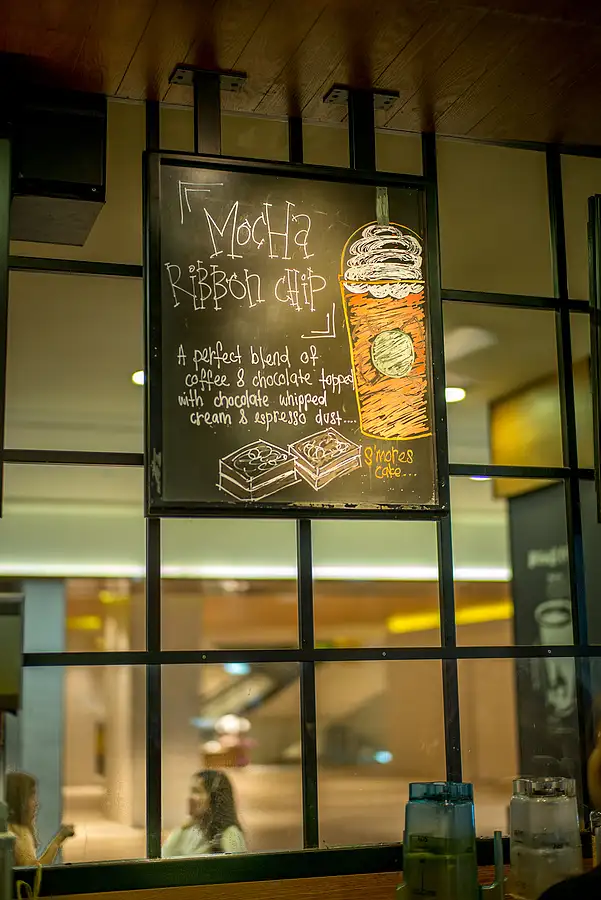 MocHa
RiBBon CHiP
A perfect blend of
coffee & chocolate topped
with chocolate whipped
cream & espresso dust....
S'mores
Cake....